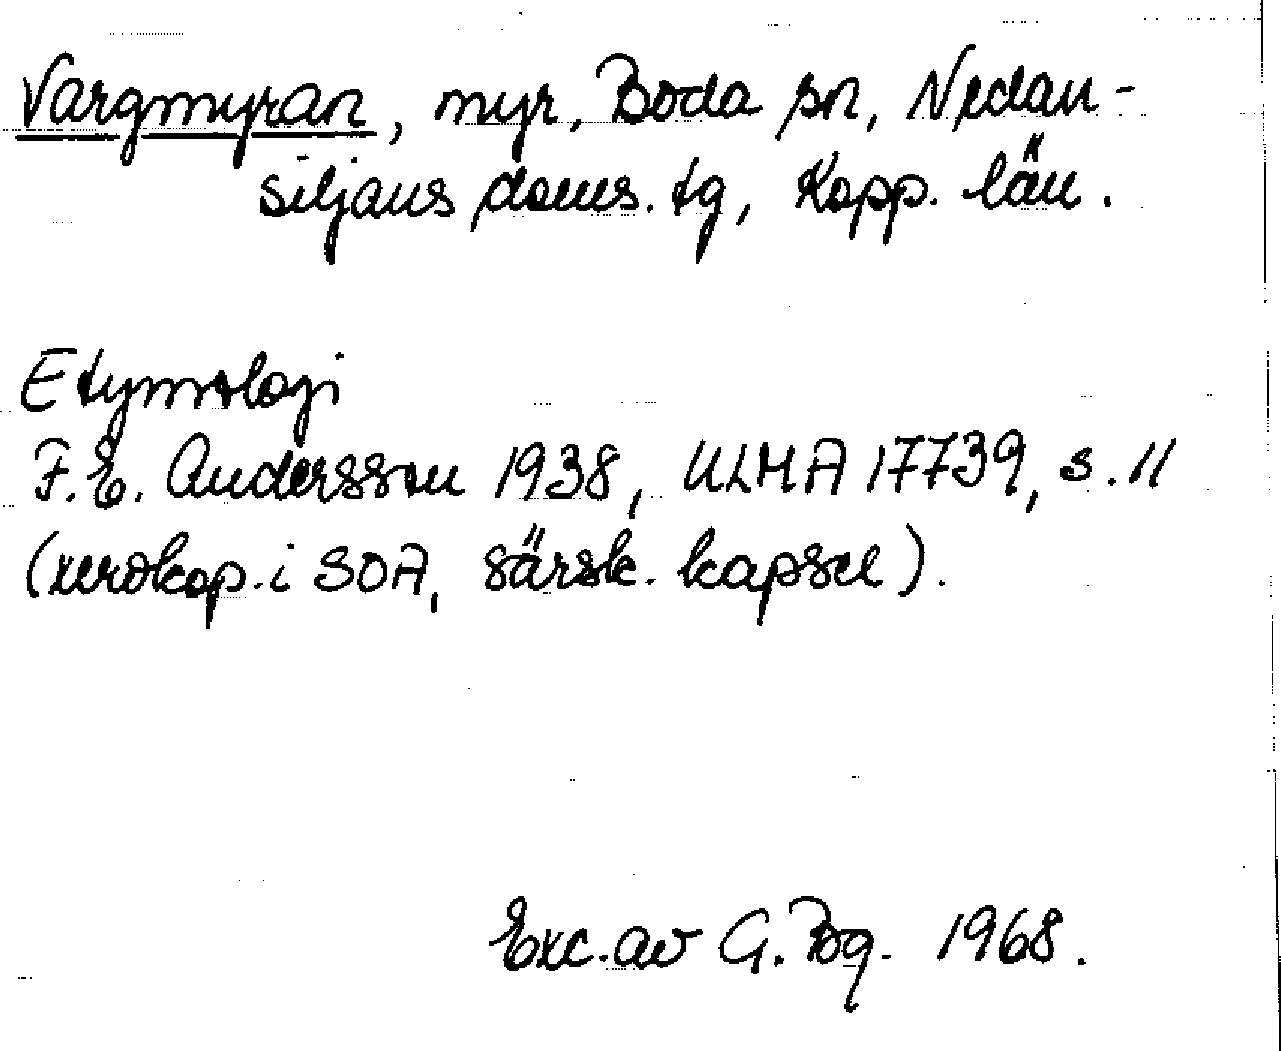 Vargmyran, myr, Boda sn, Nedan-
siljans doms. tg, Kopp. län.
Etymologi
F.E. Andersson 1938, ULMA 17739, s. 11
(xerokop. i SOA, särsk. kapsel).
Exc. av G. Bg. 1968.